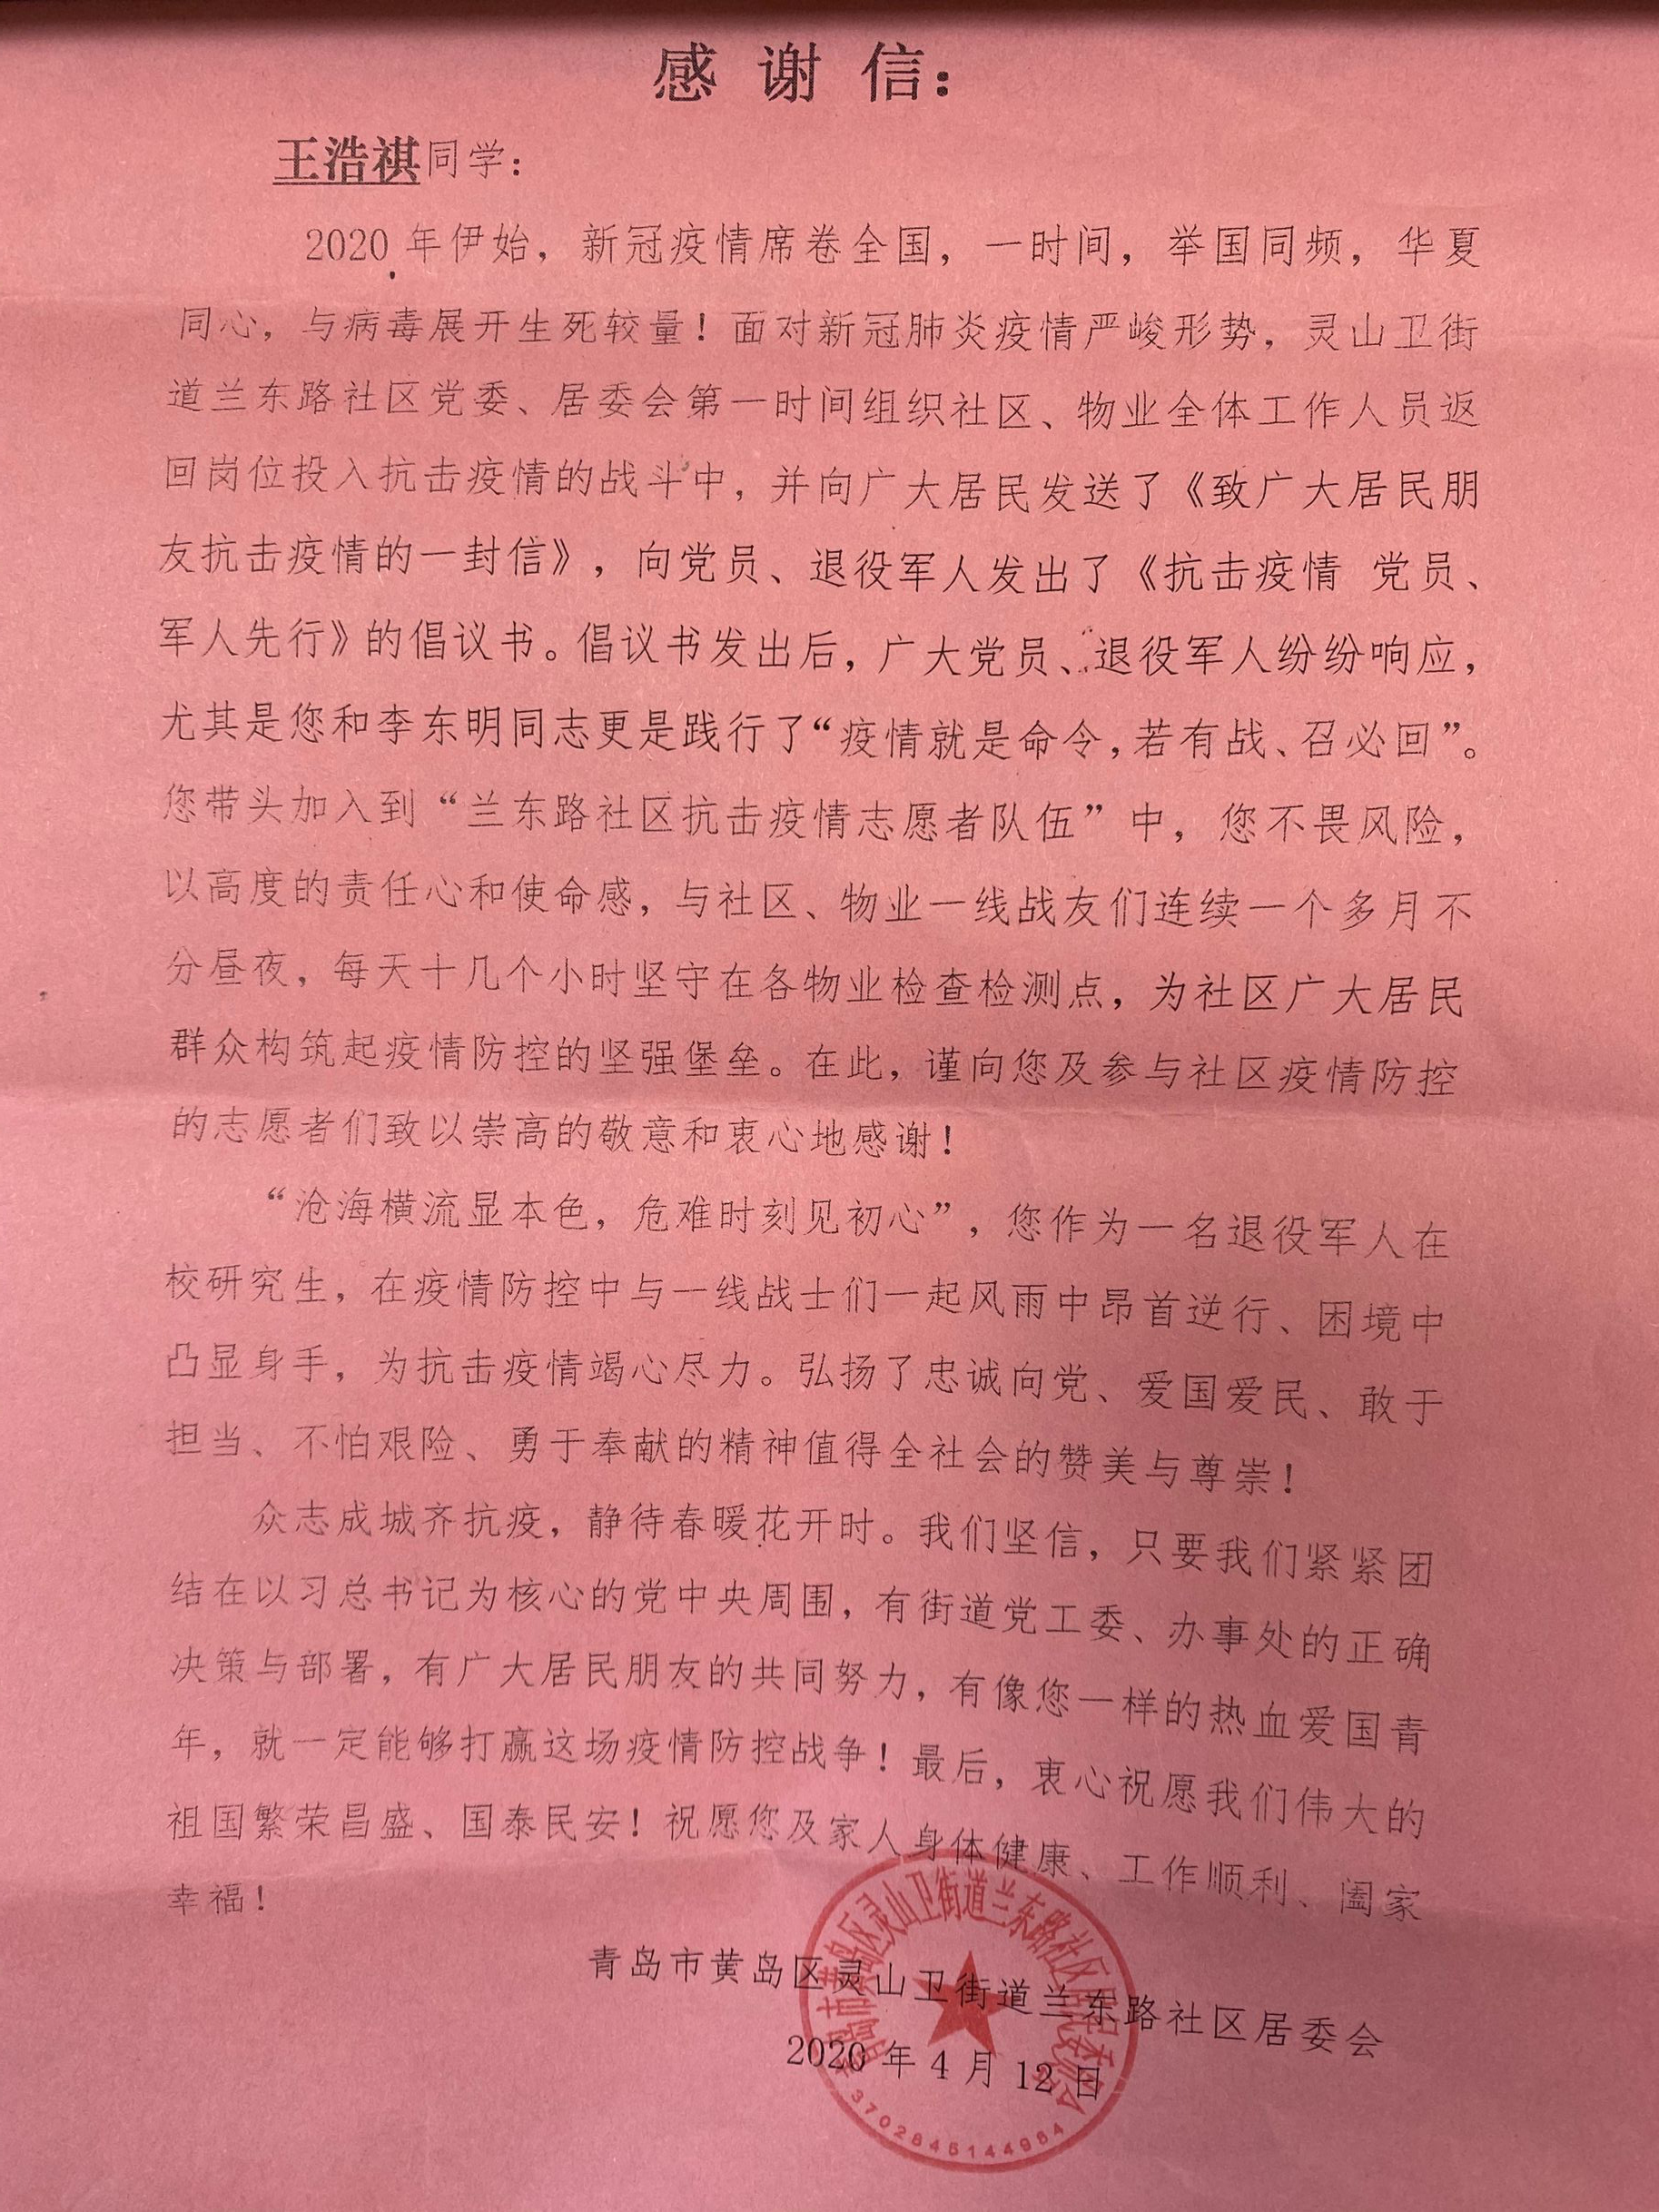 感 谢 信：
王浩祺同学：
2020 年伊始，新冠疫情席卷全国，一时间，举国同频，华夏
同心，与病毒展开生死较量！面对新冠肺炎疫情严峻形势，灵山卫街
道兰东路社区党委、居委会第一时间组织社区、物业全体工作人员返
回岗位投入抗击疫情的战斗中，并向广大居民发送了《致广大居民朋
友抗击疫情的一封信》，向党员、退役军人发出了《抗击疫情 党员、
军人先行》的倡议书。倡议书发出后，广大党员、退役军人纷纷响应，
尤其是您和李东明同志更是践行了“疫情就是命令，若有战、召必回”。
您带头加入到“兰东路社区抗击疫情志愿者队伍”中，您不畏风险，
以高度的责任心和使命感，与社区、物业一线战友们连续一个多月不
分昼夜，每天十几个小时坚守在各物业检查检测点，为社区广大居民
群众构筑起疫情防控的坚强堡垒。在此，谨向您及参与社区疫情防控
的志愿者们致以崇高的敬意和衷心地感谢！
“沧海横流显本色，危难时刻见初心”，您作为一名退役军人在
校研究生，在疫情防控中与一线战士们一起风雨中昂首逆行、困境中
凸显身手，为抗击疫情竭心尽力。弘扬了忠诚向党、爱国爱民、敢于
担当、不怕艰险、勇于奉献的精神值得全社会的赞美与尊崇！
众志成城齐抗疫，静待春暖花开时。我们坚信，只要我们紧紧团
结在以习总书记为核心的党中央周围，有街道党工委、办事处的正确
决策与部署，有广大居民朋友的共同努力，有像您一样的热血爱国青
年，就一定能够打赢这场疫情防控战争！最后，衷心祝愿我们伟大的
祖国繁荣昌盛、国泰民安！祝愿您及家人身体健康、工作顺利、阖家
幸福！
青岛市黄岛区灵山卫街道兰东路社区居委会
2020 年 4 月 12 日
青岛市黄岛区灵山卫街道兰东路社区居民委员会
3702845144984